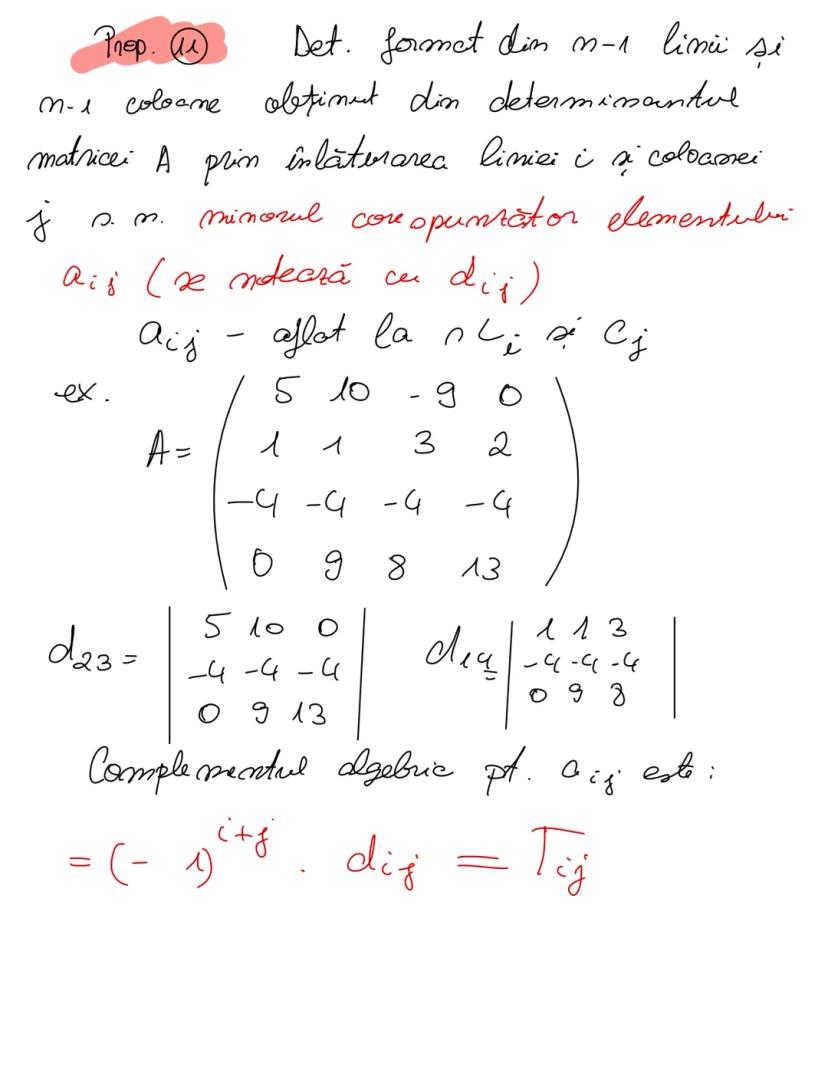 Prop. 11 Det. format din n-1 linii și
n-1 coloane obținut din determinantul
matricei A prin înlăturarea liniei i și coloanei
j s.n. minorul corespunzător elementului
aij (se notează cu dij)
aij - aflat la ∩ Li și Cj
ex.
A= ( 5 10 -9 0
1 1 3 2
-4 -4 -4 -4
0 9 8 13 )
d23 = | 5 10 0
-4 -4 -4
0 9 13 |
d14 = | 1 1 3
-4 -4 -4
0 9 8 |
Complementul algebric pt. aij este:
= (-1)^i+j . dij = Tij